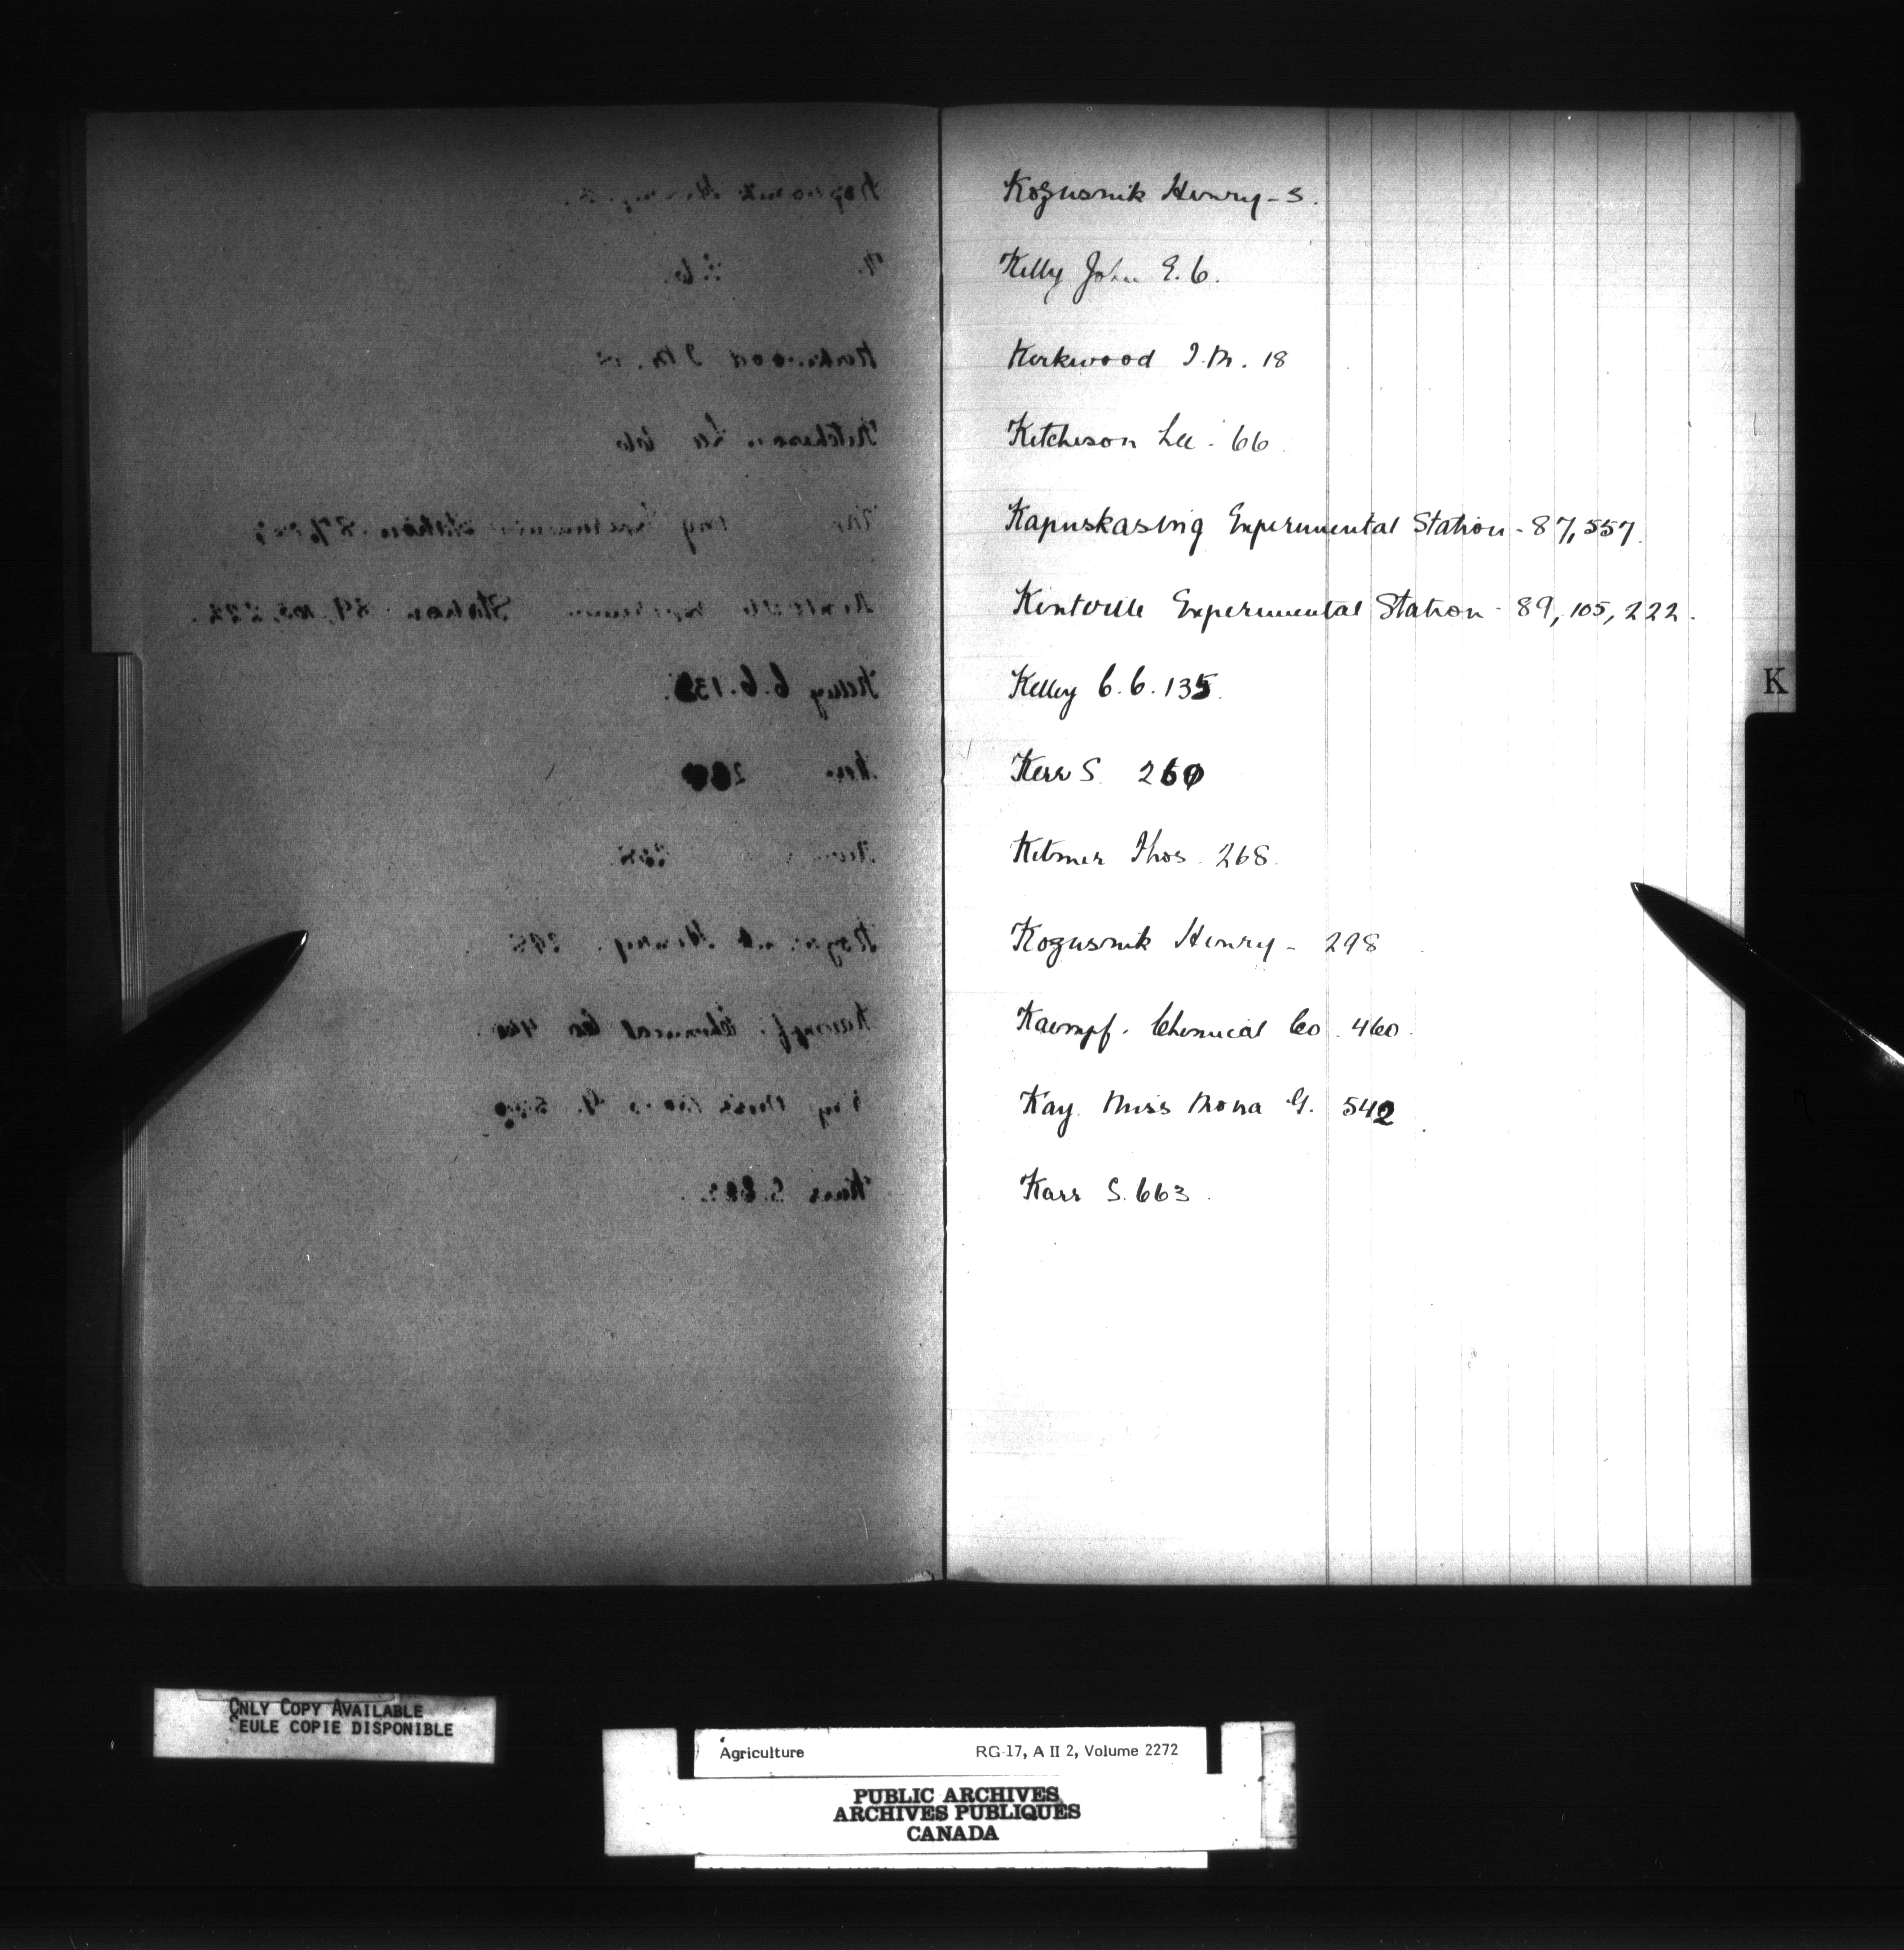 Kozusnik Henry - 3.
Kelly John E. 6.
Kirkwood J. M. 18
Kitcheson Lee - 66
Kapuskasing Experimental Station - 87, 557.
Kentville Experimental Station - 89, 105, 222.
K
Kelley C. C. 135.
Kerr S. 260
Kitmer Thos. 268.
Kozusnik Henry - 298
Kaempf. Chemical Co. 460.
Kay Miss Mona G. 542
Karr S. 663.
ONLY COPY AVAILABLE
EULE COPIE DISPONIBLE
Agriculture RG 17, A II 2, Volume 2272
PUBLIC ARCHIVES
ARCHIVES PUBLIQUES
CANADA